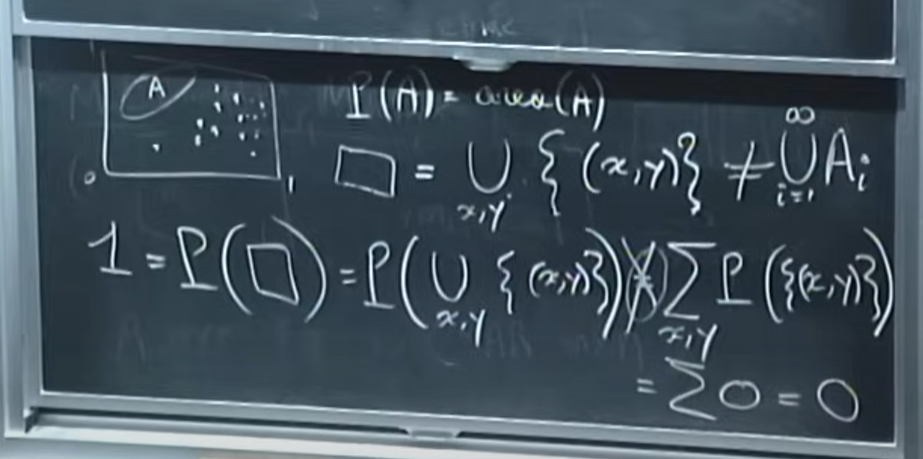 A
P(A) = area(A)
0 1
□ = ∪_{x,y} {(x,y)} ≠ ∪_{i=1}^{∞} A_i
1 = P(□) = P(∪_{x,y} {(x,y)}) = ∑_{x,y} P({(x,y)})
= ∑ 0 = 0